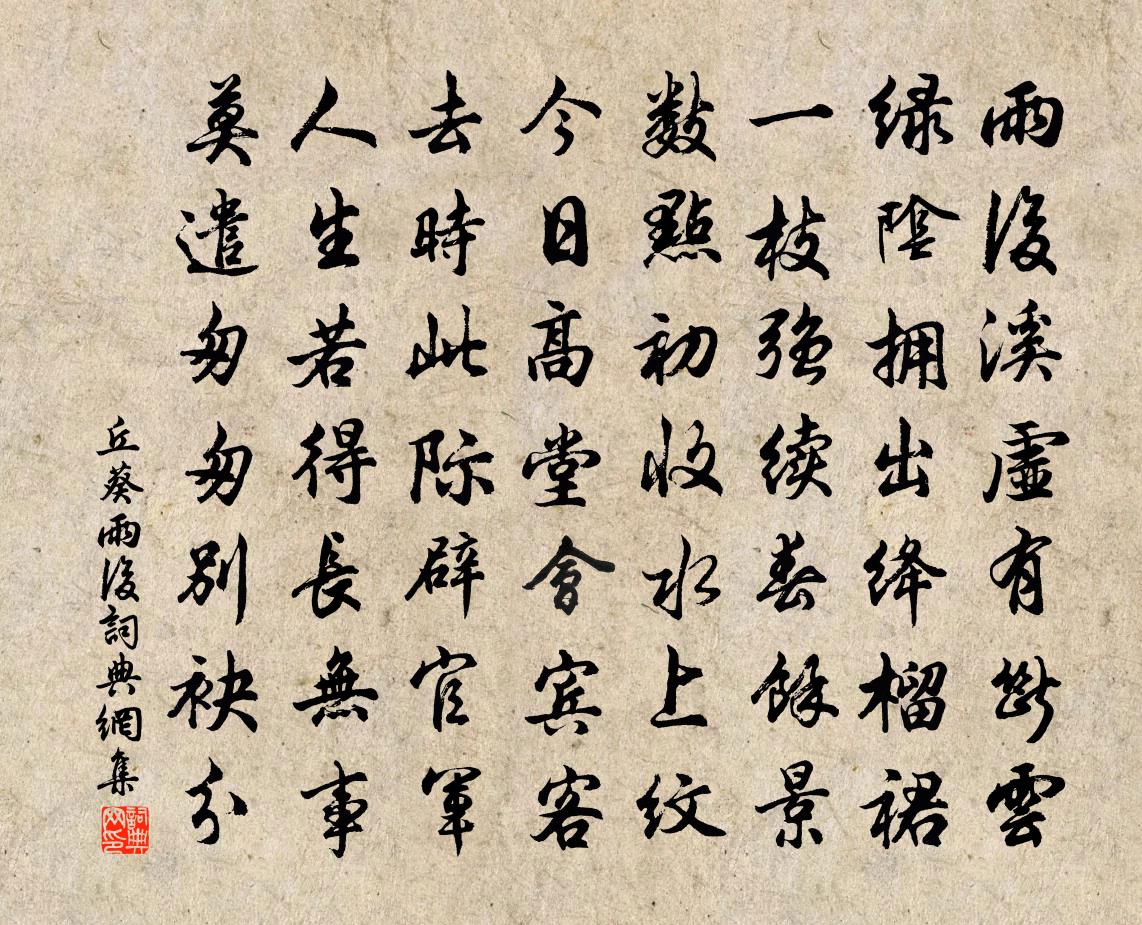 雨後溪虛有斷雲
緑陰擁出絳榴裙
一枝強續春餘景
數點初收水上紋
今日高堂會賓客
去時此際辟官軍
人生若得長無事
莫遣匆匆別袂分
丘葵雨後詞典網集
詞典网印